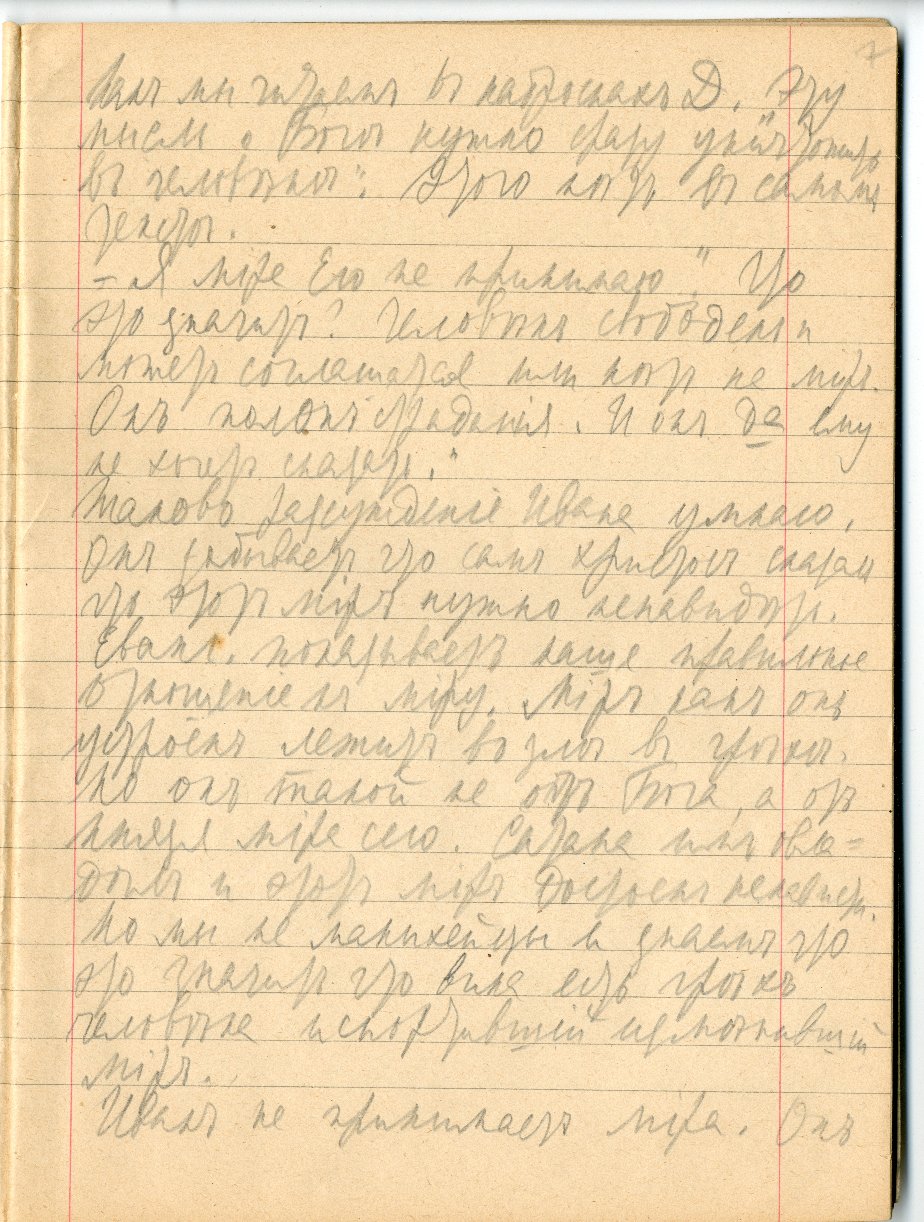 какъ мы читаемъ въ наброскахъ Д. эту
мысль о Богѣ нужно сразу уничтожить
въ человѣкѣ": Этого нѣтъ въ самомъ
текстѣ.
– Я міра Его не принимаю". Что
это значитъ? Человѣкъ свободенъ и
можетъ соглашаться или нѣтъ на міръ.
Онъ полонъ страданія. И онъ да ему
не хочетъ сказать."
Таково разсужденіе Ивана умнаго.
Онъ забываетъ что самъ Христосъ сказалъ
что этотъ міръ нужно ненавидѣть.
Еванг. показываетъ наше правильное
отношеніе къ міру. Міръ какъ онъ
устроенъ лежитъ во злѣ въ грѣхѣ.
Но онъ такой не отъ Бога, а отъ
князя міра сего. Сатана имъ овла-
дѣлъ и этотъ міръ достоенъ ненависти.
Но мы не манихейцы и знаемъ что
это значитъ что вина есть грѣхъ
человѣка испортившій измѣнившій
міръ.
Иванъ не принимаетъ міра. Онъ